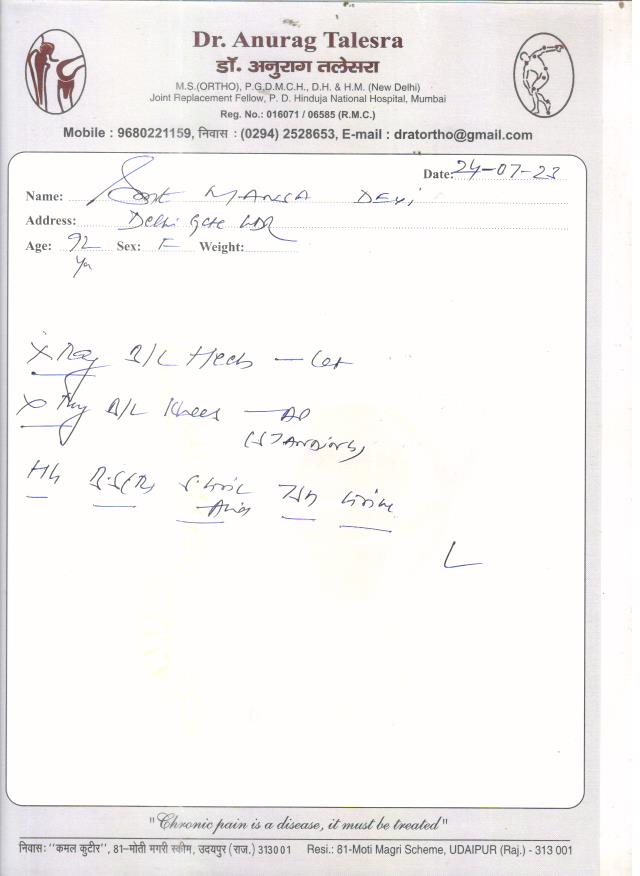 Dr. Anurag Talesra
डॉ. अनुराग तलेसरा
M.S.(ORTHO), P.G.D.M.C.H., D.H. & H.M. (New Delhi)
Joint Replacement Fellow, P. D. Hinduja National Hospital, Mumbai
Reg. No.: 016071 / 06585 (R.M.C.)
Mobile : 9680221159, निवास : (0294) 2528653, E-mail : dratortho@gmail.com
Date: 24-07-23
Name: Smt MANSA DEVI
Address: Delhi Gate UDR
Age: 92 Yr Sex: F Weight:
X Ray B/L Heels — Lat
X Ray B/L Knees — AP
(STANDING)
Hb S. Uric TSH Urine
Acid
"Chronic pain is a disease, it must be treated"
निवास: "कमल कुटीर", 81-मोती मगरी स्कीम, उदयपुर (राज.) 313001 Resi.: 81-Moti Magri Scheme, UDAIPUR (Raj.) - 313 001